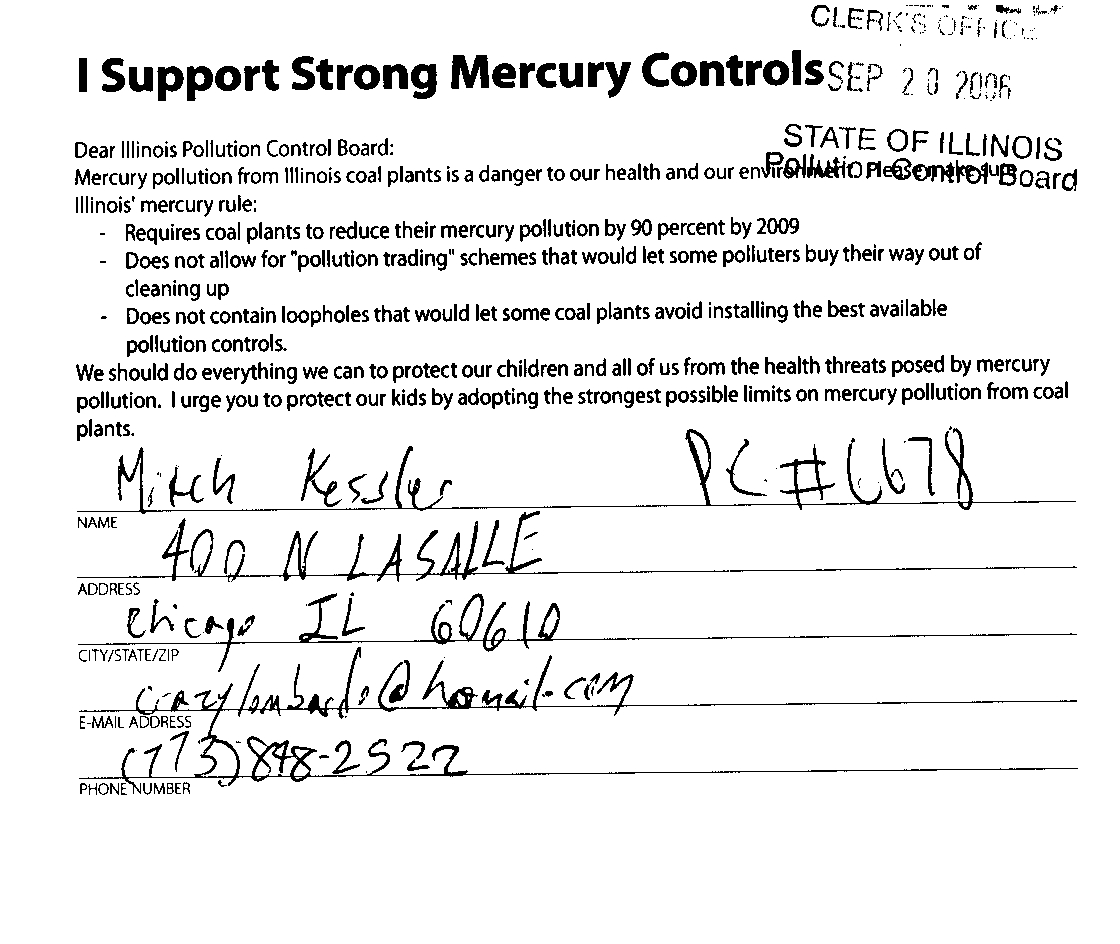 CLERK'S OFFICE
I Support Strong Mercury Controls
SEP 20 2006
STATE OF ILLINOIS
Pollution Control Board
Dear Illinois Pollution Control Board:
Mercury pollution from Illinois coal plants is a danger to our health and our environment. Please make sure
Illinois' mercury rule:
- Requires coal plants to reduce their mercury pollution by 90 percent by 2009
- Does not allow for "pollution trading" schemes that would let some polluters buy their way out of
cleaning up
- Does not contain loopholes that would let some coal plants avoid installing the best available
pollution controls.
We should do everything we can to protect our children and all of us from the health threats posed by mercury
pollution. I urge you to protect our kids by adopting the strongest possible limits on mercury pollution from coal
plants.
Mitch Kessler PC #6678
NAME
400 N LASALLE
ADDRESS
Chicago IL 60610
CITY/STATE/ZIP
E-MAIL ADDRESS
(773)848-2522
PHONE NUMBER